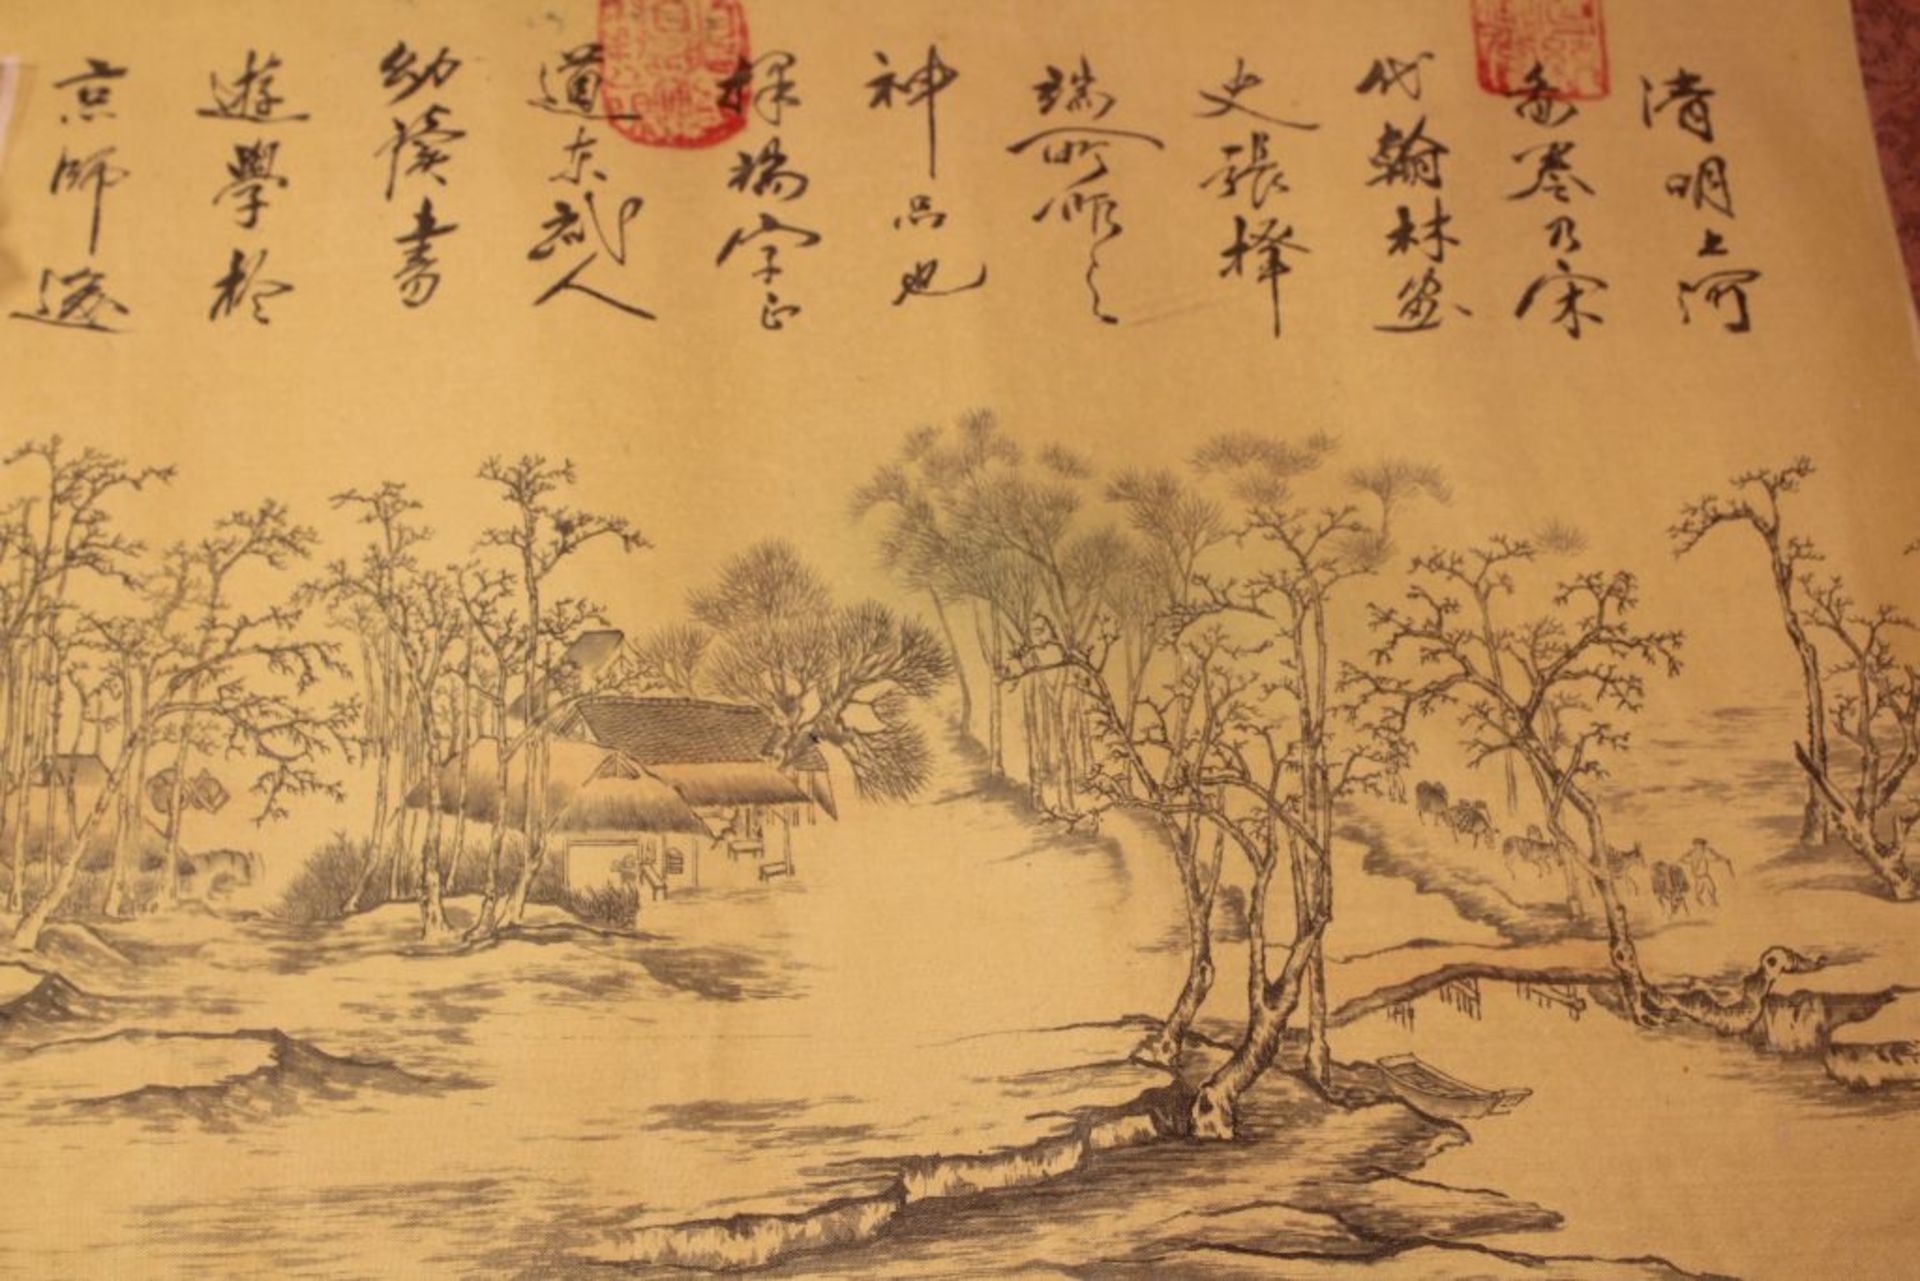 清明上河
畫卷乃宋
代翰林畫
史張擇
端所作之
神品也
擇端字正
道東武人
幼讀書
遊學於
京師後